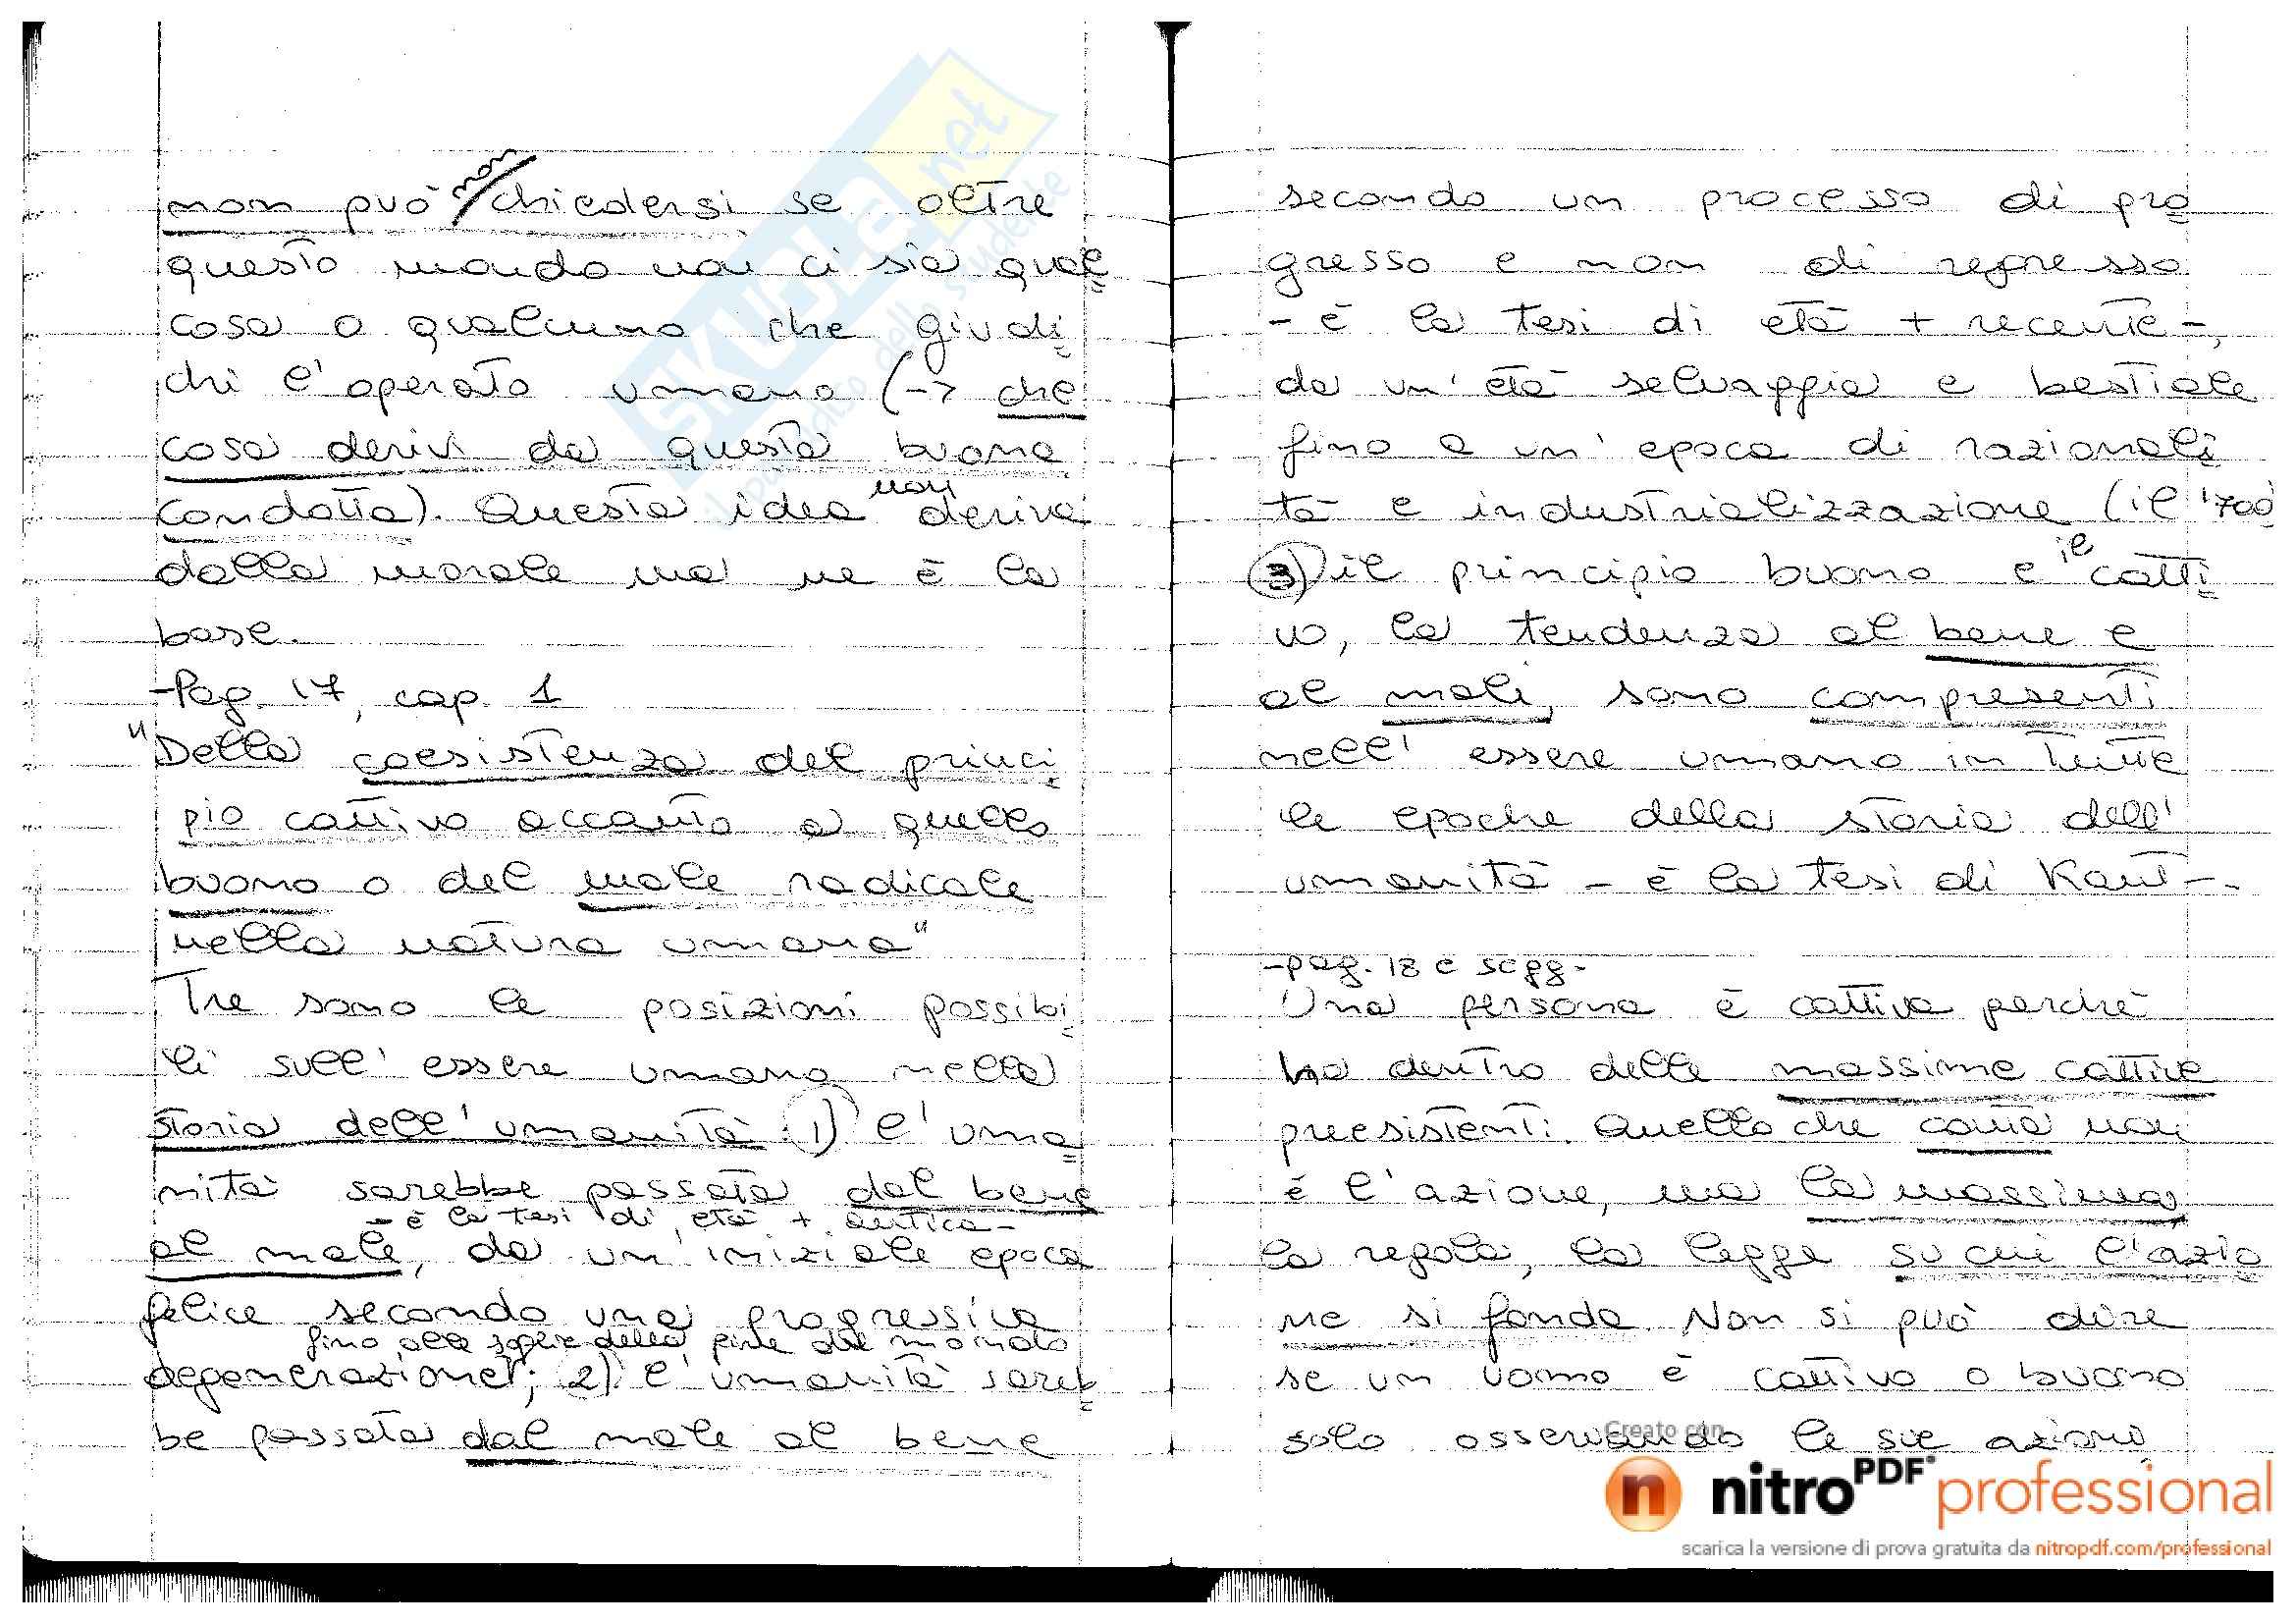 non può non chiedersi se oltre
questo mondo non ci sia qual
cosa o qualcuno che giudi
chi l'operato umano (-> che
cosa derivi da questa buona
condotta). Questa idea non deriva
dalla morale ma ne è la
base.
-Pag. 17, cap. 1
"Della coesistenza del princi
pio cattivo accanto a quello
buono o del male radicale
nella natura umana"
Tre sono le posizioni possibi
li sull'essere umano nella
storia dell'umanità: 1) l'uma
nità sarebbe passata dal bene
- è la tesi di età + antica -
al male, da un'iniziale epoca
felice secondo una progressiva
fino alle soglie della fine del mondo
degenerazione; 2) l'umanità sareb
be passata dal male al bene
secondo un processo di pro
gresso e non di regresso
- è la tesi di età + recente -,
da un'età selvaggia e bestiale
fino a un'epoca di razionali
tà e industrializzazione (il '700)
3) il principio buono e il catti
vo, la tendenza al bene e
al male, sono compresenti
nell'essere umano in tutte
le epoche della storia dell'
umanità - è la tesi di Kant -.
-pag. 18 e segg-
Una persona è cattiva perchè
ha dentro delle massime cattive
preesistenti. Quello che conta non
è l'azione, ma la massima,
la regola, la legge su cui l'azio
ne si fonda. Non si può dire
se un uomo è cattivo o buono
solo osservando le sue azioni,
SKUOLA.net
il paradiso dello studente
Creato con
nitro PDF professional
scarica la versione di prova gratuita da nitropdf.com/professional